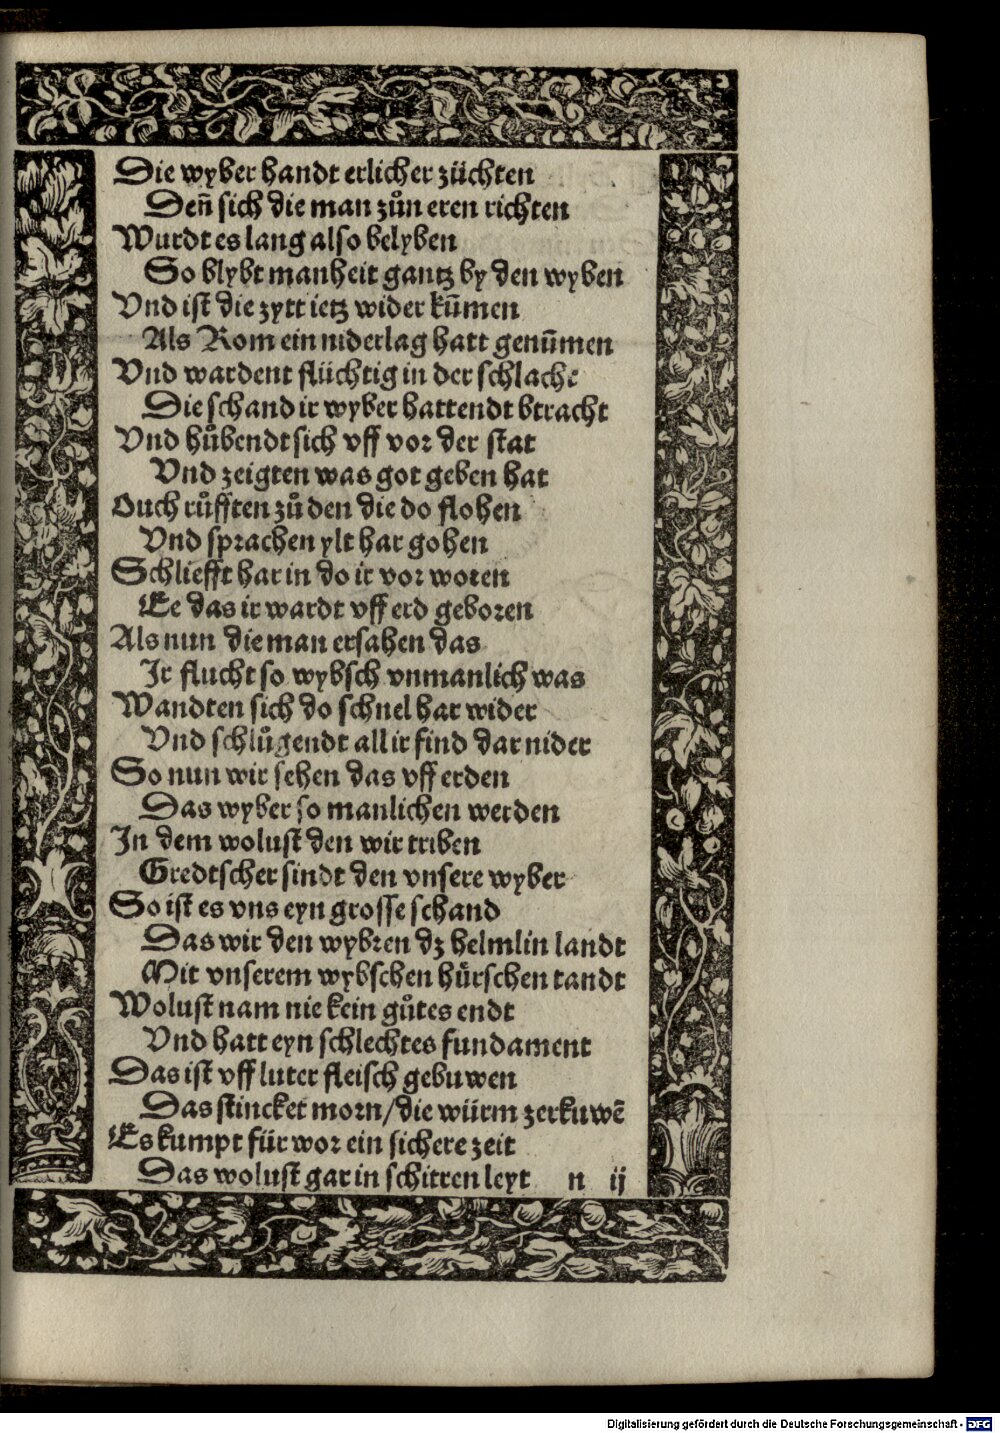 Die wyber handt erlicher züchten
Deñ sich die man zůn eren richten
Wurdt es lang also belyben
So blybt manheit gantz by den wyben
Vnd ist die zytt ietz wider kūmen
Als Rom ein niderlag hatt genūmen
Vnd wardent flüchtig in der schlacht
Die schand ir wyber hattendt btracht
Vnd hůbendt sich vff vor der stat
Vnd zeigten was got geben hat
Ouch růfften zů den die do flohen
Vnd sprachen ylt har gohen
Schliefft har in do ir vor woren
Ee das ir wardt vff erd geboren
Als nun die man ersahen das
Ir flucht so wybsch vnmanlich was
Wandten sich do schnel har wider
Vnd schlůgendt all ir find dar nider
So nun wir sehen das vff erden
Das wyber so manlichen werden
In dem wolust den wir triben
Gredtscher sindt den vnsere wyber
So ist es vns eyn grosse schand
Das wir den wybren dz helmlin landt
Mit vnserem wybschen hůrschen tandt
Wolust nam nie kein gůtes endt
Vnd hatt eyn schlechtes fundament
Das ist vff luter fleisch gebuwen
Das stincket morn/die würm zerkuwē
Es kumpt für wor ein sichere zeit
Das wolust gar in schitren leyt n ij
Digitalisierung gefördert durch die Deutsche Forschungsgemeinschaft - DFG